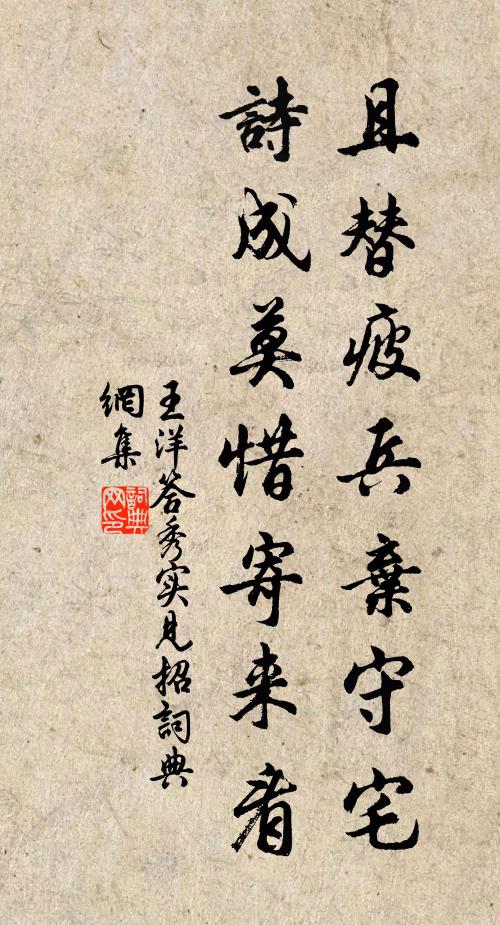 且替疲兵棄守宅
詩成莫惜寄来看
王洋答秀实見招詞典
網集
詞典
网印